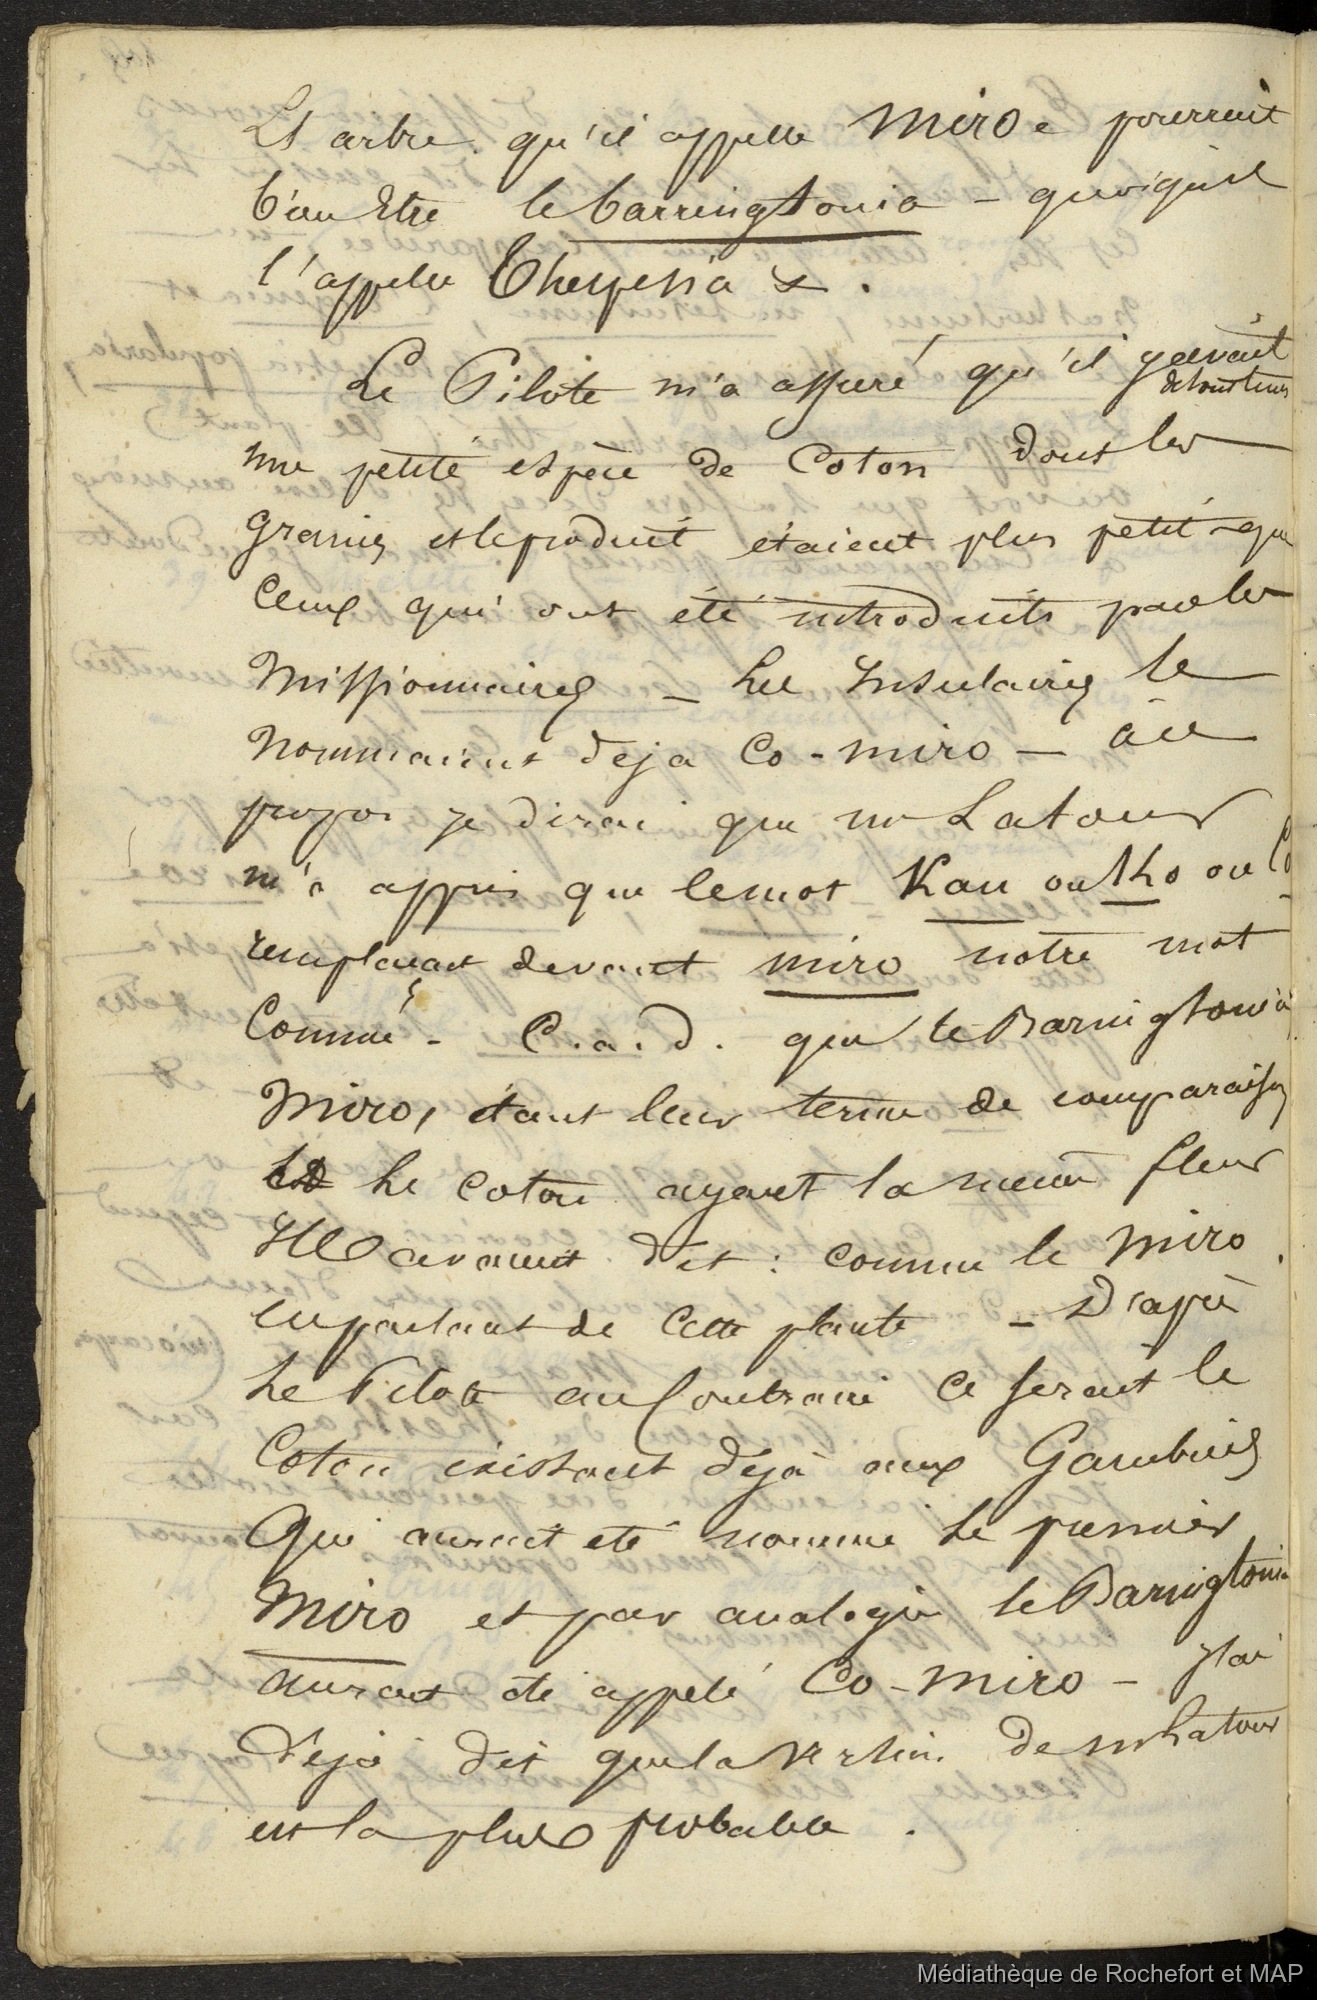 Ls arbre qu'il appelle Miro e pourrait
bien Etre le barringtonia - quoiqu'il
l'appelle Thespesia .
Le Pilote m'a assuré qu'il y avait
de tout tems
une petite espèce de Coton dont les
graines et le produit étaient plus petits que
Ceux qui ont été introduits par les
Missionnaires - Les Insulaires le
Nommaient deja Co-miro - à ce
propos je dirai que mr Latour
m'a appris que le mot Kau ou Ko ou Co
remplaçait devant miro notre mot
Comme - C.a.d. que le Barringtonia
Miro, étant leur terme de comparaison
Le coton ayant la même fleur
Ils avaient dit : comme le Miro .
en parlant de Cette plante - D'après
Le Pilote au Contraire ce serait le
Coton existant déjà aux Gambiers
Qui aurait eté nommé le premier
Miro et par analogie le Barringtonia
aurait été appelé Co-Miro - J'ai
Déjà dit que la version de mr Latour
est la plus probable .
Médiathèque de Rochefort et MAP